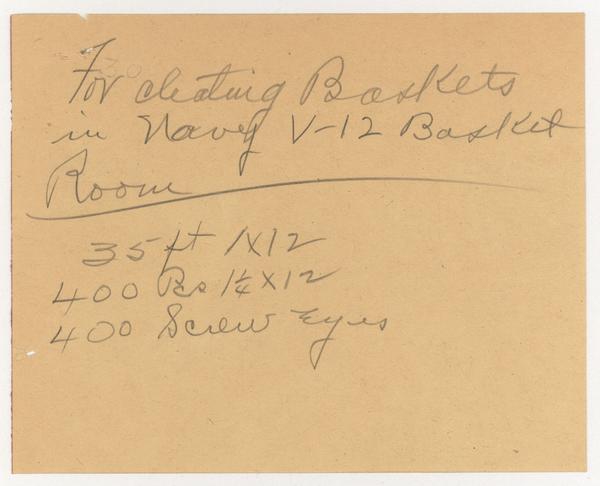 For cleating Baskets
in Navy V-12 Basket
Room
35 ft 1X12
400 Pcs 1¼ X 12
400 Screw Eyes